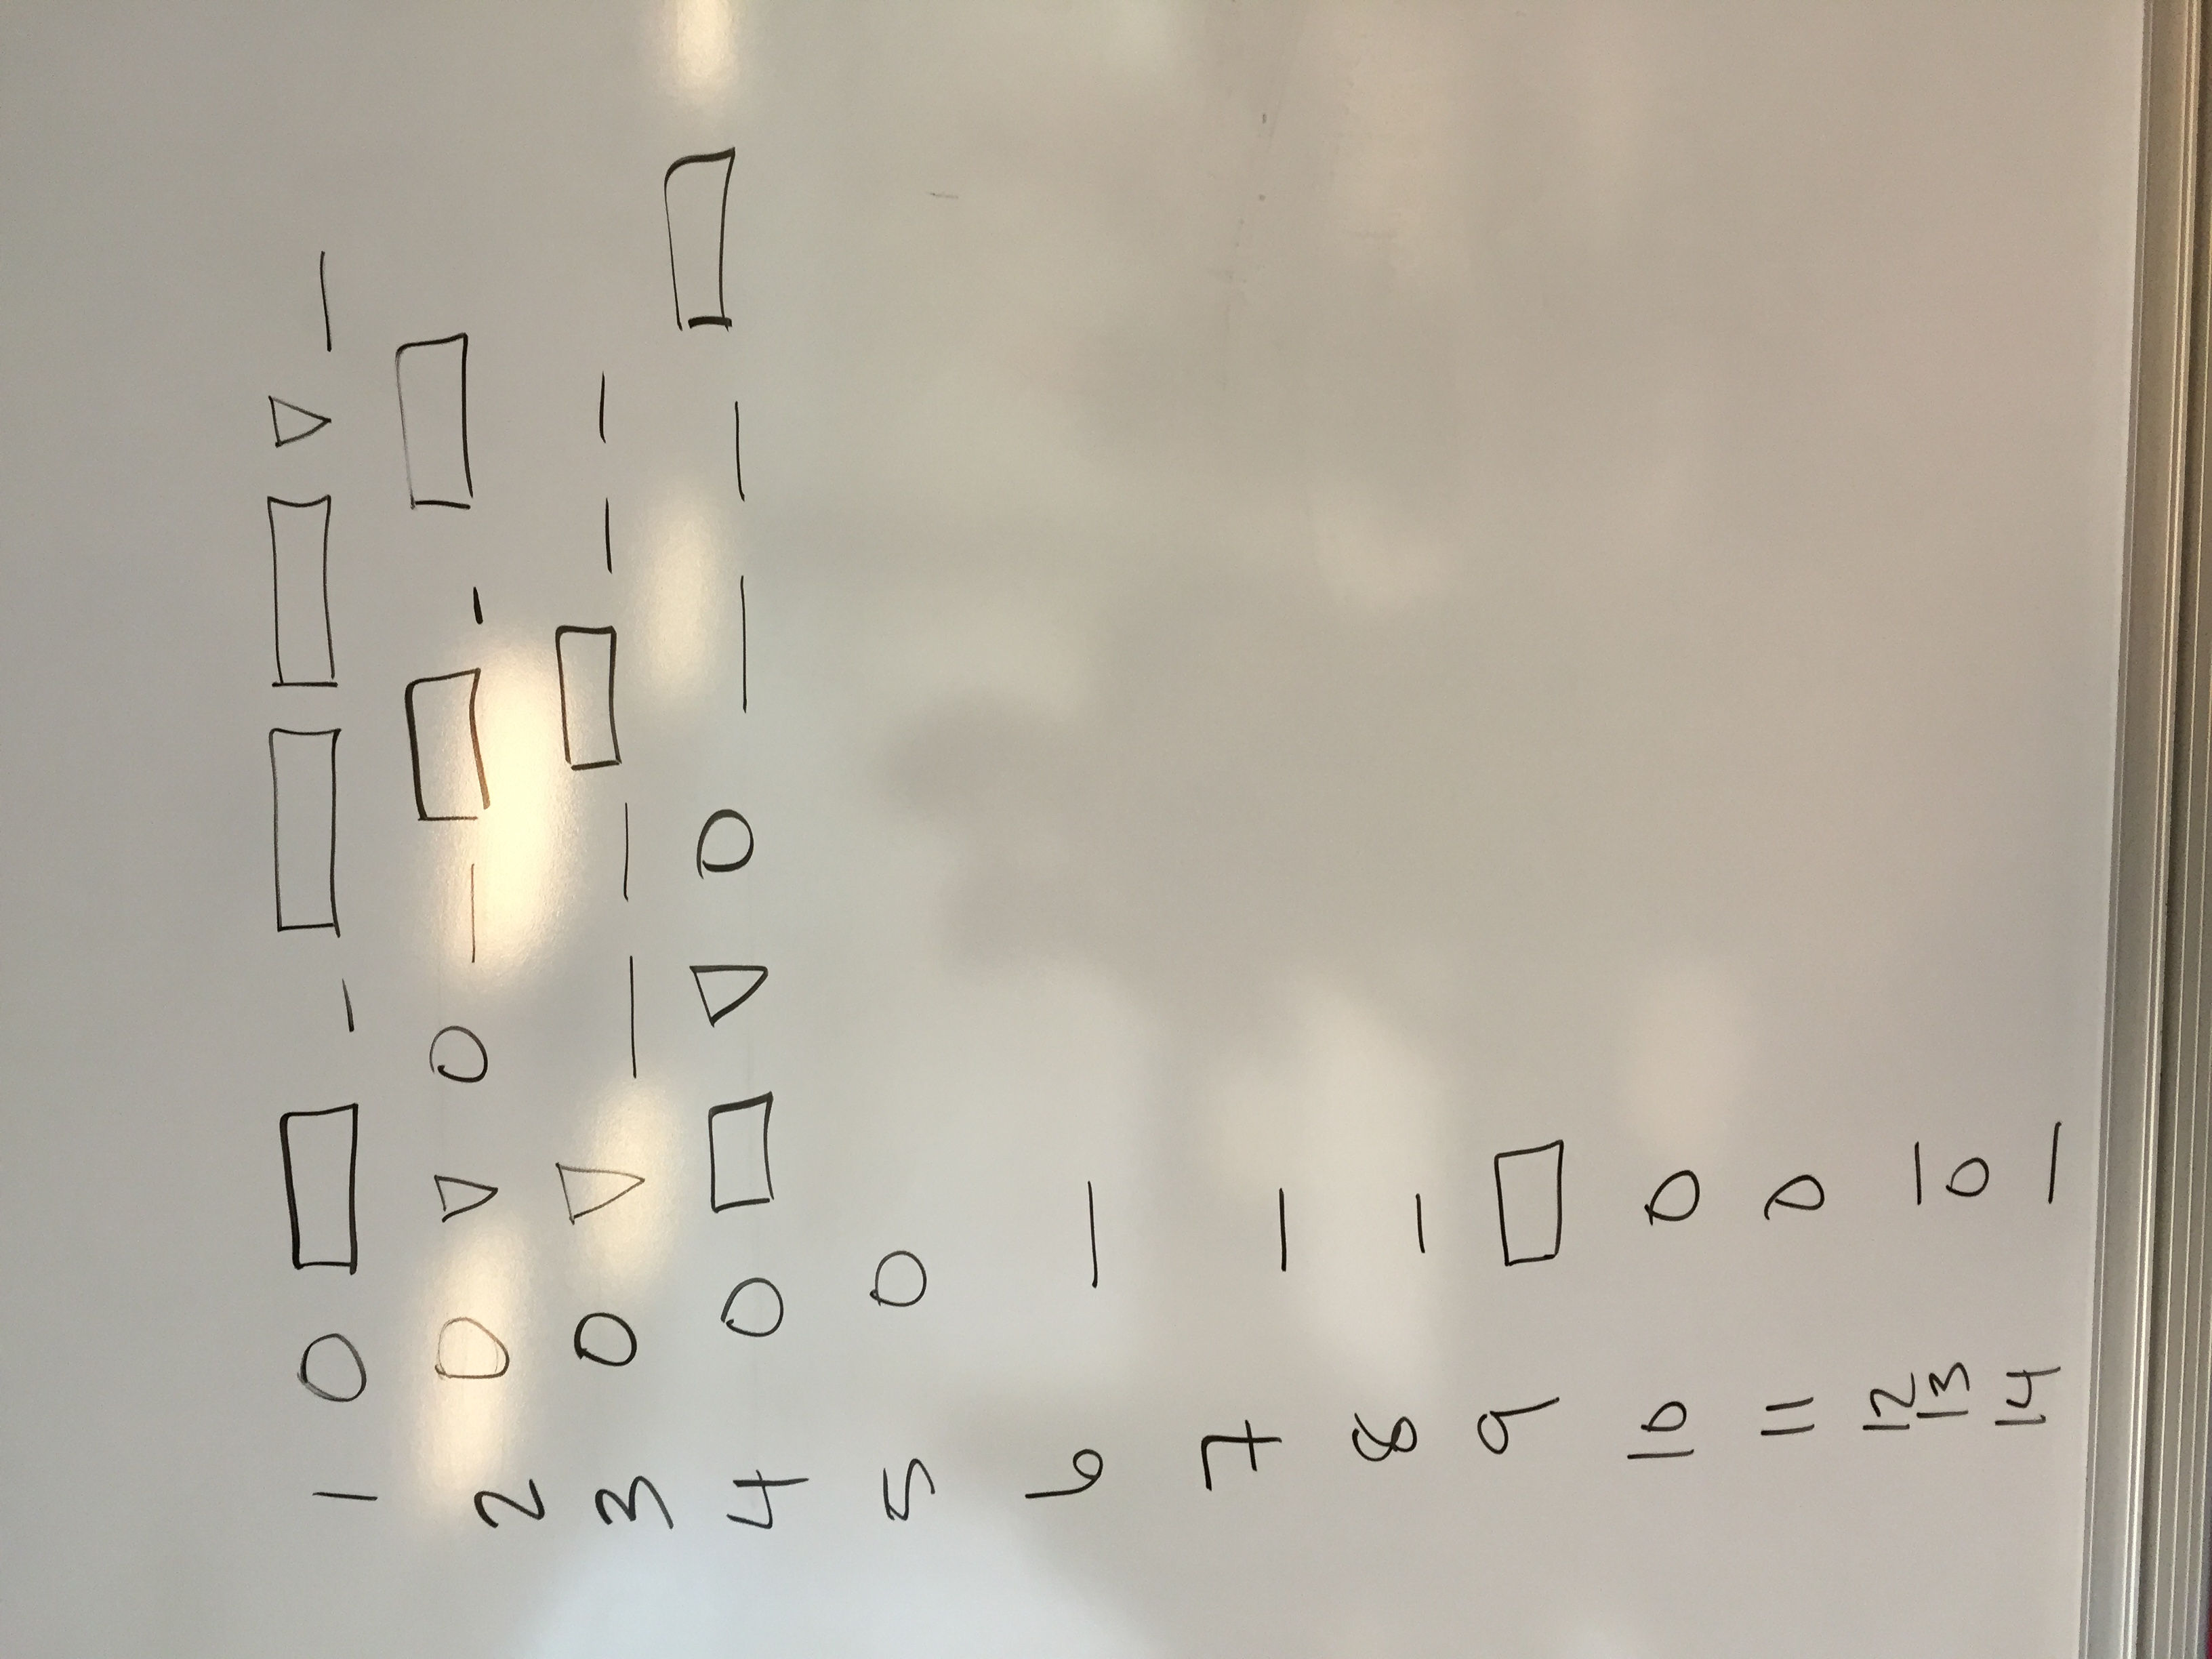 1 O ▭ _ ▭ ▭ ▽ _
2 O ▽ O _ ▭ _ ▭
3 O ▽ _ _ ▭ _ _
4 O ▭ ▽ O _ _ ▭
5 O
6 _
7 _
8 _
9 ▭
10 O
11 O
12 _
13 O
14 _